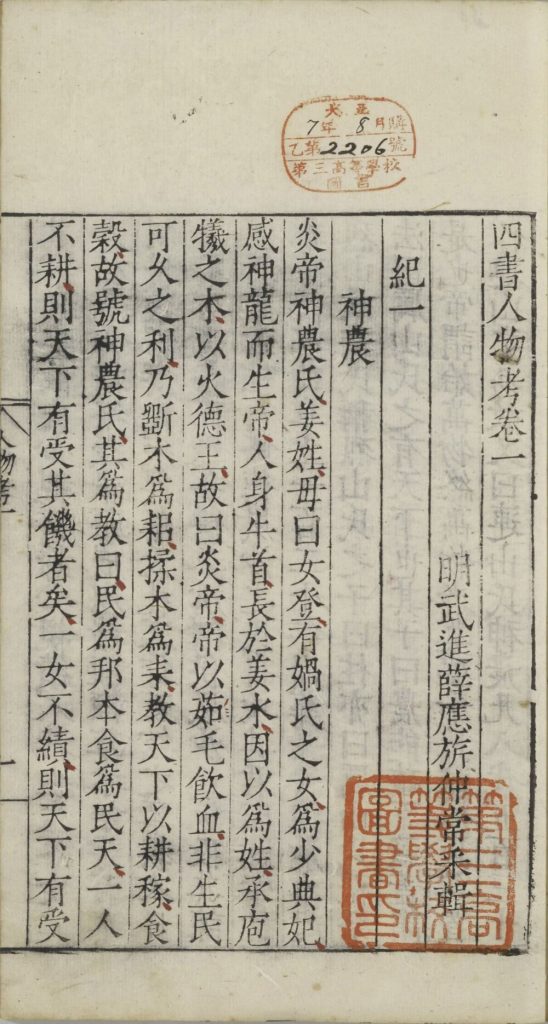 大正
7年 8月購
乙第2206號
第三高等學校
圖書
四書人物考卷一
明武進薛應旂仲常采輯
紀一
神農
炎帝神農氏姜姓母曰女登有媧氏之女為少典妃
感神龍而生帝人身牛首長於姜水因以為姓承庖
犧之木以火德王故曰炎帝帝以茹毛飲血非生民
可久之利乃斲木為耜揉木為耒教天下以耕稼食
穀故號神農氏其為教曰民為邦本食為民天一人
不耕則天下有受其饑者矣一女不績則天下有受
人物考一
一
第三高
等學校
圖書印